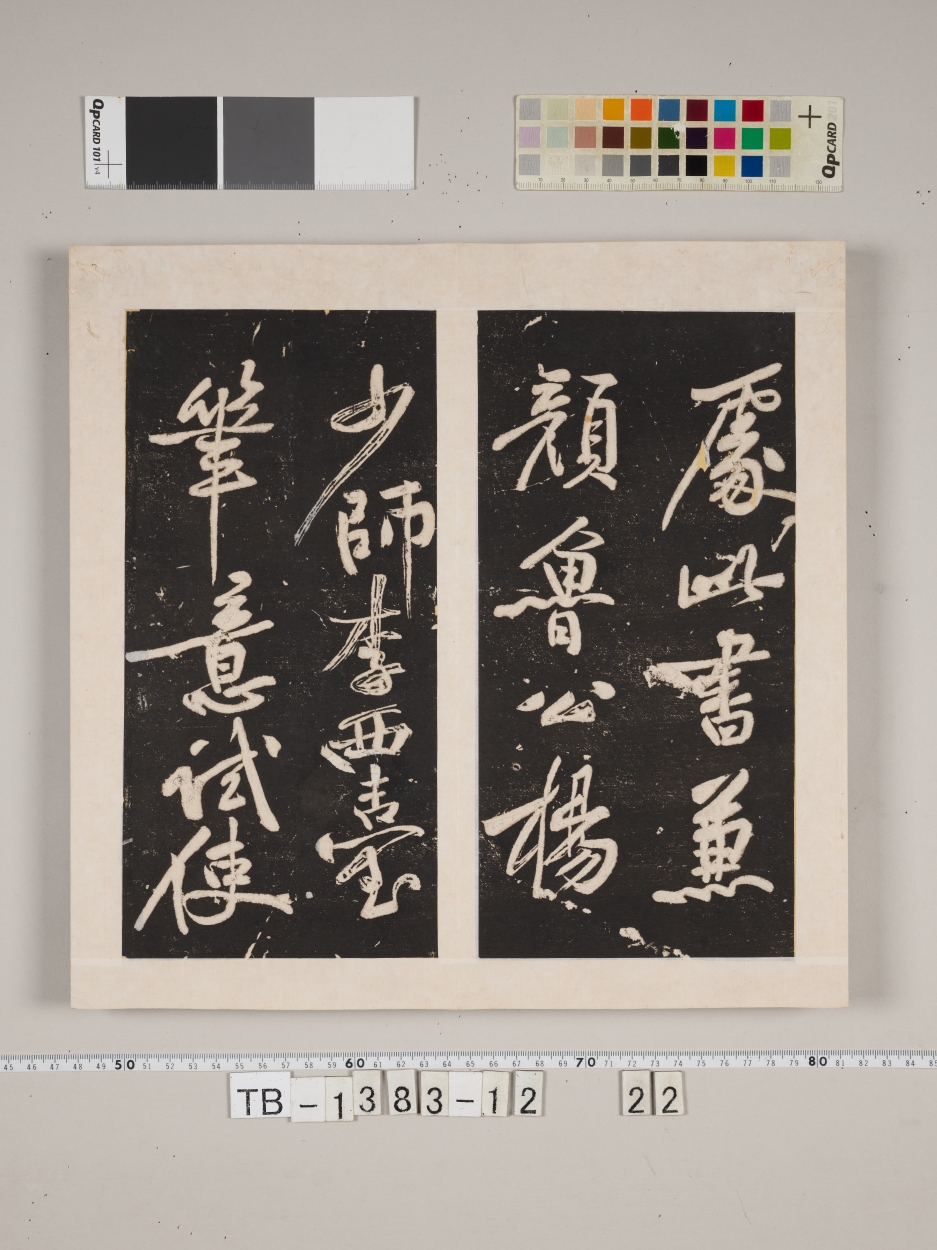 QpCARD 101 v4
QpCARD 201
處此書兼
顏魯公楊
少師李西臺
筆意試使
45 46 47 48 49 50 51 52 53 54 55 56 57 58 59 60 61 62 63 64 65 66 67 68 69 70 71 72 73 74 75 76 77 78 79 80 81 82 83 84 85
TB-1383-12 22